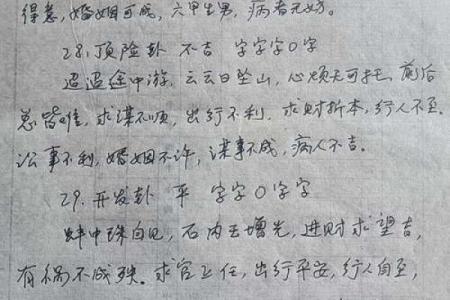 得意,婚姻可成,六甲生男,病者无妨。
28.顶险卦 不吉 字字字〇字
迢迢途中游,云云日坠山,心烦无可托,前后
总皆难,求谋不顺,出行不利,求财折本,行人不至。
讼事不利,婚姻不许,谋事不成,病人不吉。
29.开发卦 平 字字〇字字
蚌中珠自见,石内玉增光,进财求望吉,
有祸不成殃。求官上任,出行平安,行人自至,